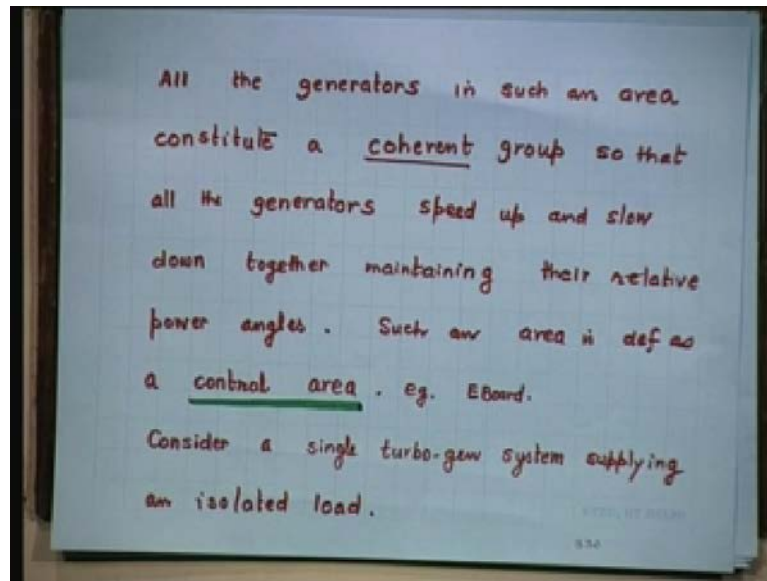 All the generators in such an area
constitute a coherent group so that
all the generators speed up and slow
down together maintaining their relative
power angles. Such an area is def as
a control area. eg. EBoard.
Consider a single turbo-gen system supplying
an isolated load.